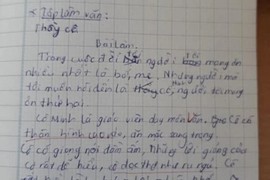 * Tập làm văn:
thầy cô
Bài làm.
Trong cuộc đời tôi người tôi mang ơn
nhiều nhất là bố, mẹ. Nhưng người mà
tôi muốn nói đến là cô, người tôi mang
ơn thứ hai.
Cô Minh là giáo viên dạy môn văn. Cô có
thân hình cao, ăn mặc sang trọng.
Cô có giọng nói đầm ấm, Những lời giảng của
cô rất dễ hiểu, cô đọc thơ như ru ngủ. Cô